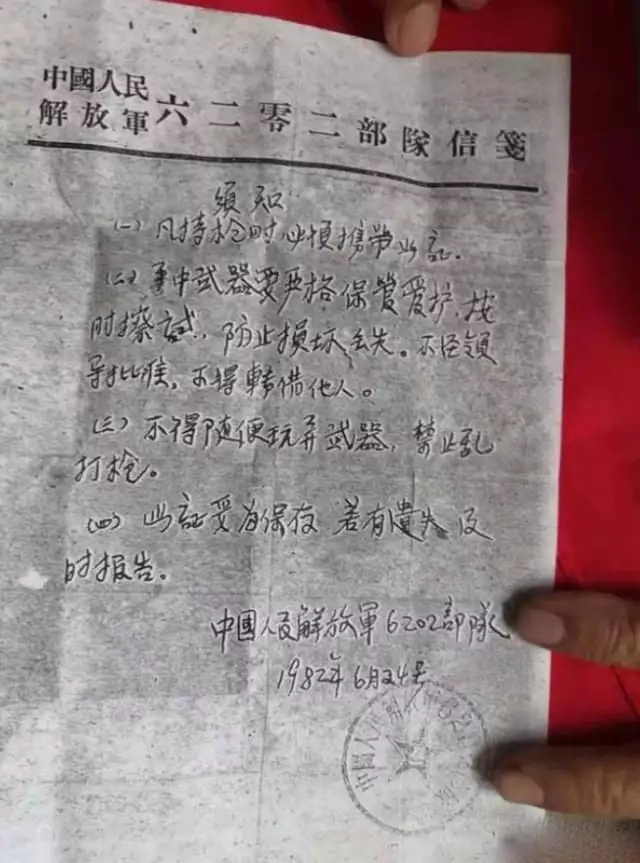 中國人民
解放軍六二零二部隊信箋
須知
(一) 凡持枪时必須携带此証。
(二) 手中武器要严格保管爱护, 按
时擦拭, 防止损坏丢失。不经領
导批准, 不得轉借他人。
(三) 不得随便玩弄武器, 禁止乱
打枪。
(四) 此証妥为保存 若有遺失 及
时报告。
中國人民解放軍6202部隊
1982年6月24号